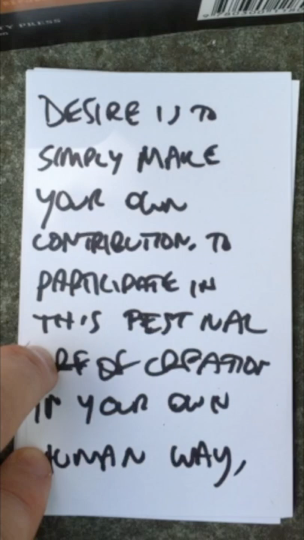 Y PRESS
DESIRE IS TO
SIMPLY MAKE
YOUR OWN
CONTRIBUTION, TO
PARTICIPATE IN
THIS
OF CREATION
IN YOUR OWN
HUMAN WAY,